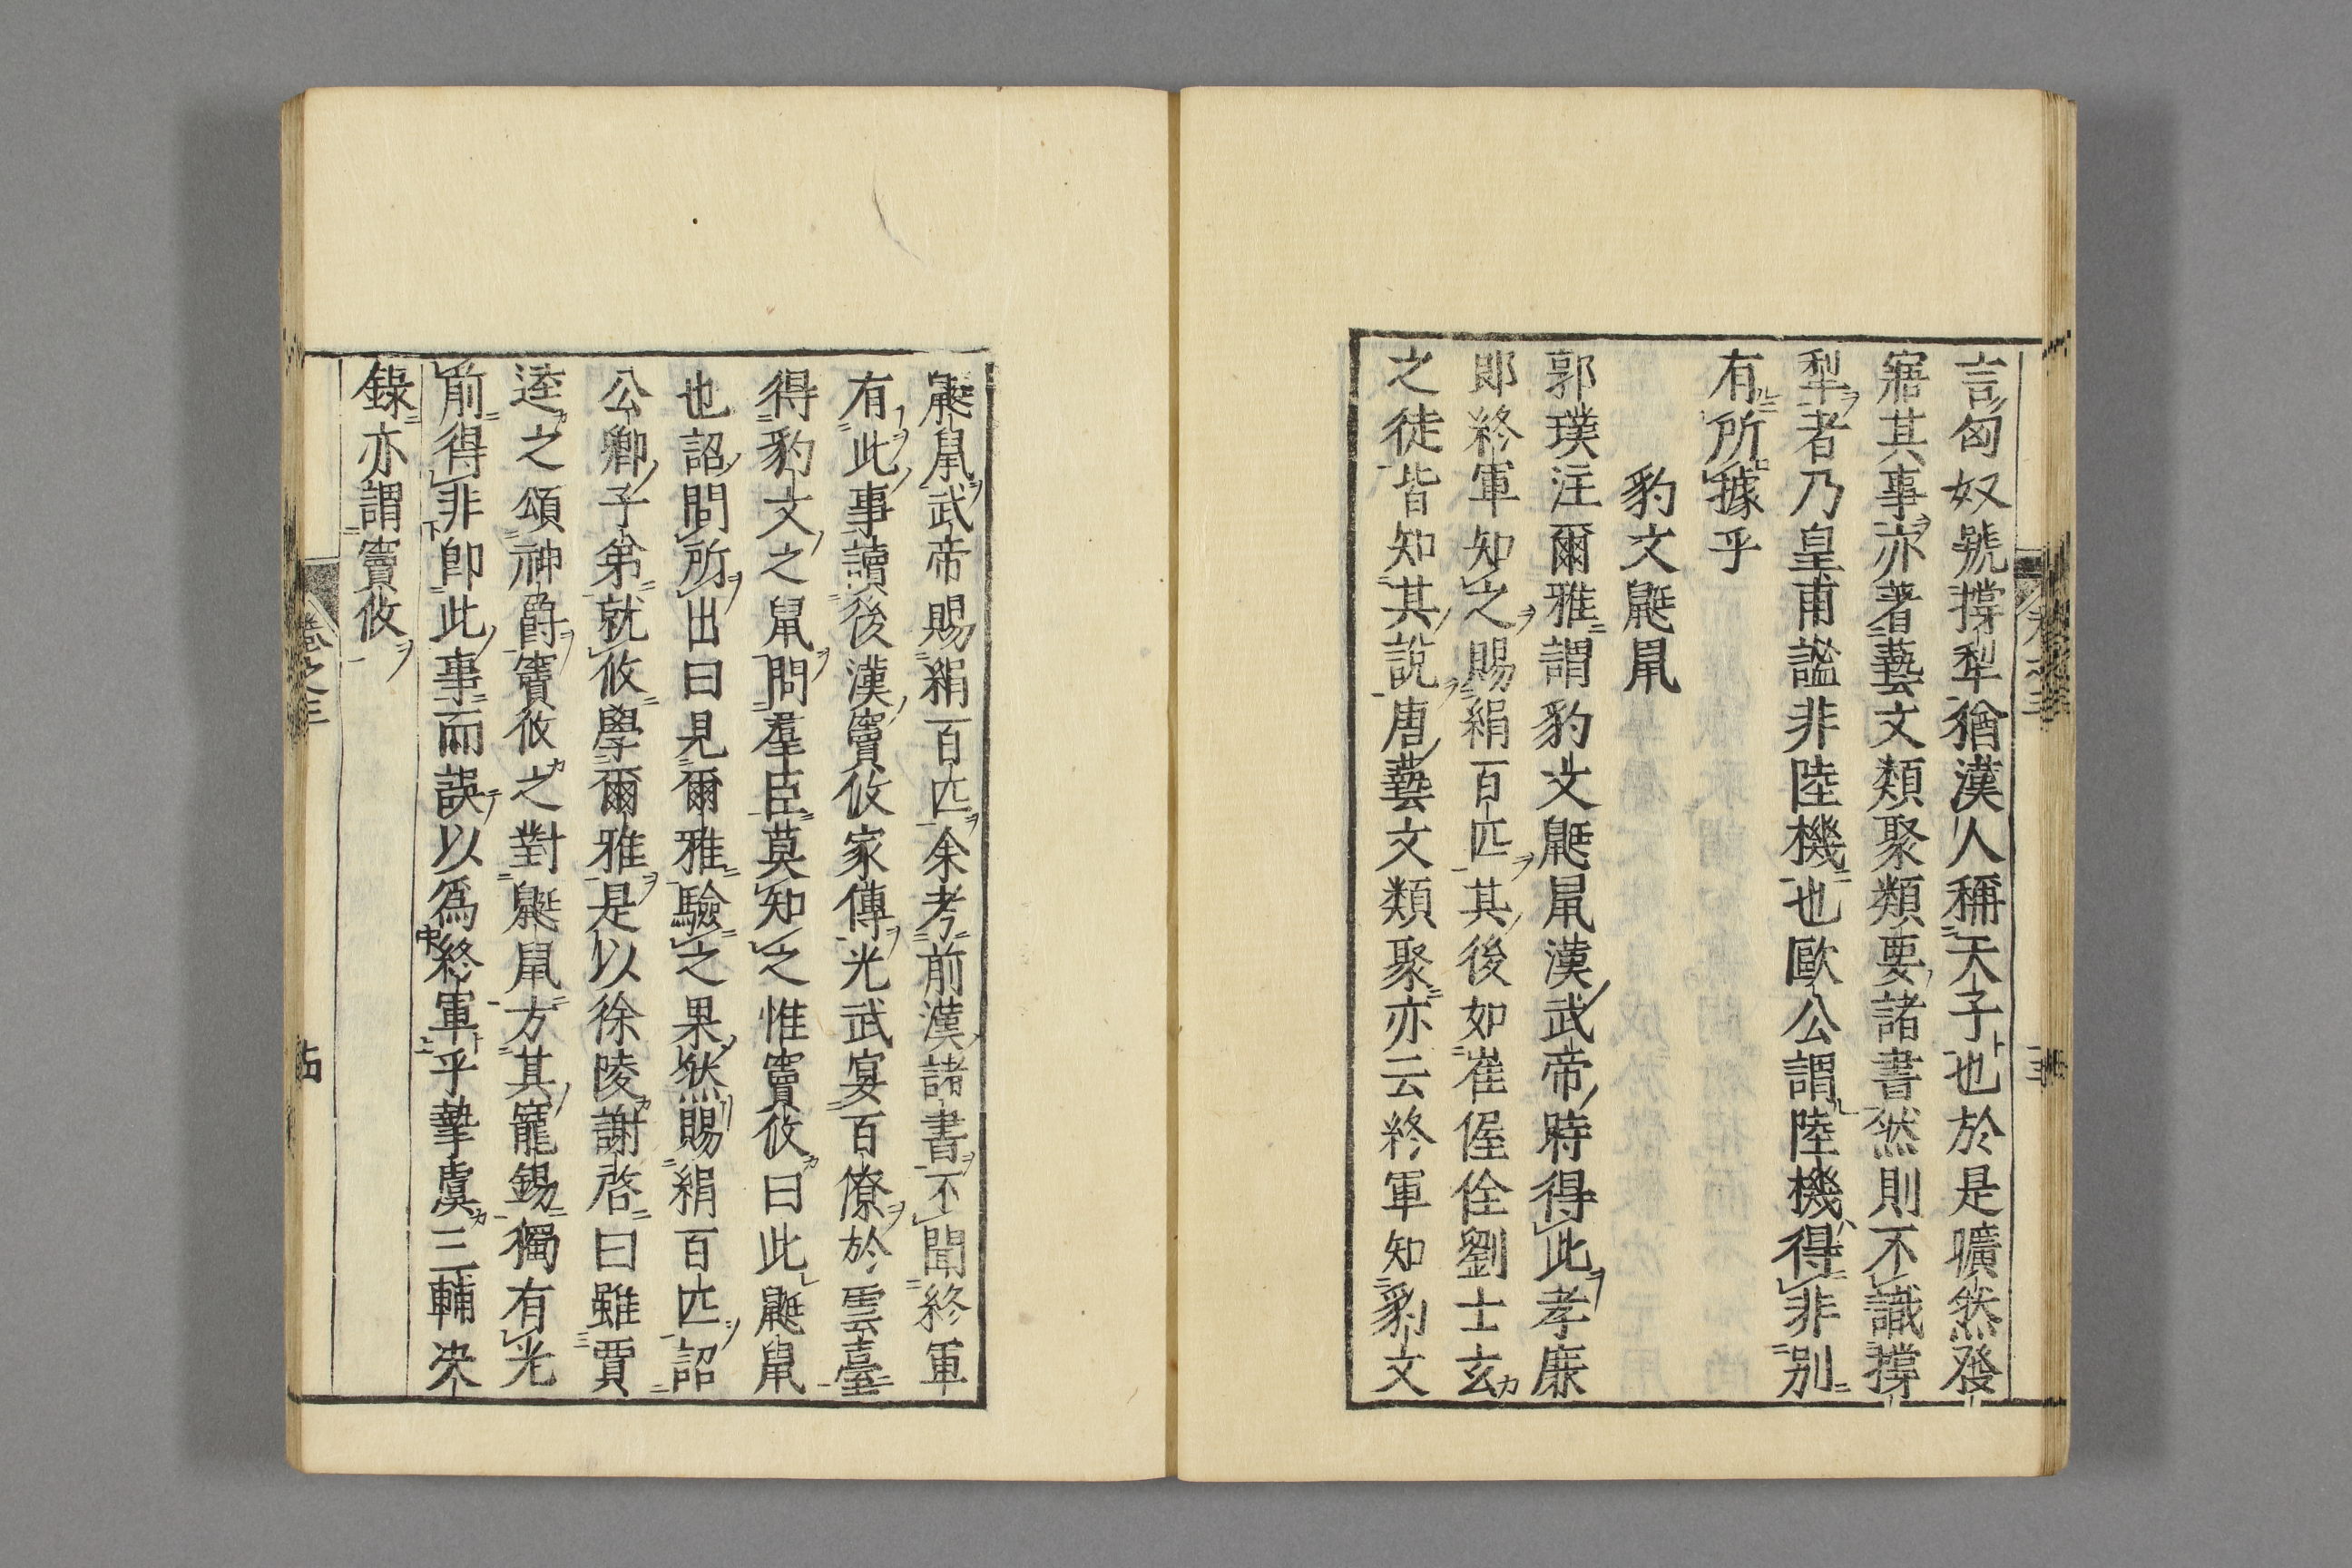 言匈奴號撐犁猶漢人稱天子也於是曠然發
寤其事亦著藝文類聚類要諸書然則不識撐
犁者乃皇甫謐非陸機也歐公謂陸機得非别
有所據乎
豹文鼮鼠
郭璞注爾雅謂豹文鼮鼠漢武帝時得此孝廉
郎終軍知之賜絹百匹其後如崔偓佺劉士玄
之徒皆知其說唐藝文類聚亦云終軍知豹文
鼮鼠武帝賜絹百匹余考前漢諸書不聞終軍
有此事讀後漢竇攸家傳光武宴百僚於雲臺
得豹文之鼠問羣臣莫知之惟竇攸曰此鼮鼠
也詔問所出曰見爾雅驗之果然賜絹百匹詔
公卿子弟就攸學爾雅是以徐陵謝啓曰雖賈
逵之頌神爵竇攸之對鼮鼠方其寵錫獨有光
前得非卽此事而誤以爲終軍乎摯虞三輔决
錄亦謂竇攸
卷之三